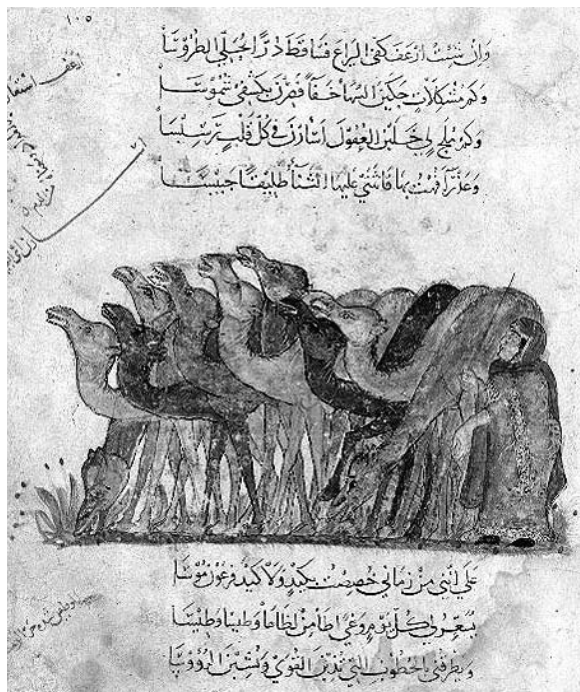 ١٠٥
وَاِنْ شِئْتُ اَرْعَفَ كَفِّى اليَرَاعَ فَسَاقَطَ دُرًّا يُحَلِّى الطُرُوْسَا
وَكَمْ مُشْكِلَاتٍ حَكَيْنَ السُّهَا خَفَآءً فَصِرْنَ بِكَشْفِى شُمُوْسَا
وَكَمْ مُلَحٍ لِى خَلَبْنَ العُقُوْلَ وَاَسْاَرْنَ فِى كُلِّ قَلْبٍ رَسِيْسَا
وَعَذْرَآءَ فُهْتُ بِهَا فَانْثَنَى عَلَيْهَا الثَّنَآءُ طَلِيْقًا حَبِيْسَا
عَلَى اَنَّنِى مِنْ زَمَانِى خُصِصْتُ بِكَيْدٍ وَلَا كَيْدِ فِرْعَوْنِ مُوْسَا
يُسَعِّرُ لِى كُلَّ يَوْمٍ وَغًى اَطَا مِنْ لَظَاهَا وَطِيْسًا وَطِيْسَا
وَيَطْرُقُنِى بِالخُطُوْبِ الَّتِى يُذِبْنَ القُوَى وَيُشِبْنَ الرُؤُوْسَا